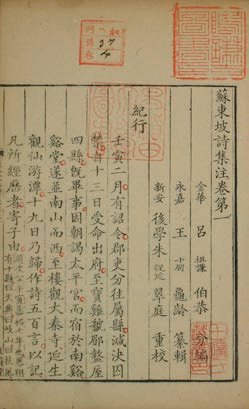 蘇東坡詩集注卷第一
金華 呂 祖謙 伯恭 編
永嘉 王 十朋 龜齡 纂輯
新安 後學朱 從延 翠庭 重校
紀行
壬寅二月有詔令郡吏分往屬縣減決囚
禁自十三日受命出府至寶雞虢郿盩厔
四縣既畢事因朝謁太平宮而宿於南谿
谿堂遂並南山而西至樓觀大秦寺延生
觀仙游潭十九日乃歸作詩五百言以記
凡所經歷者寄子由